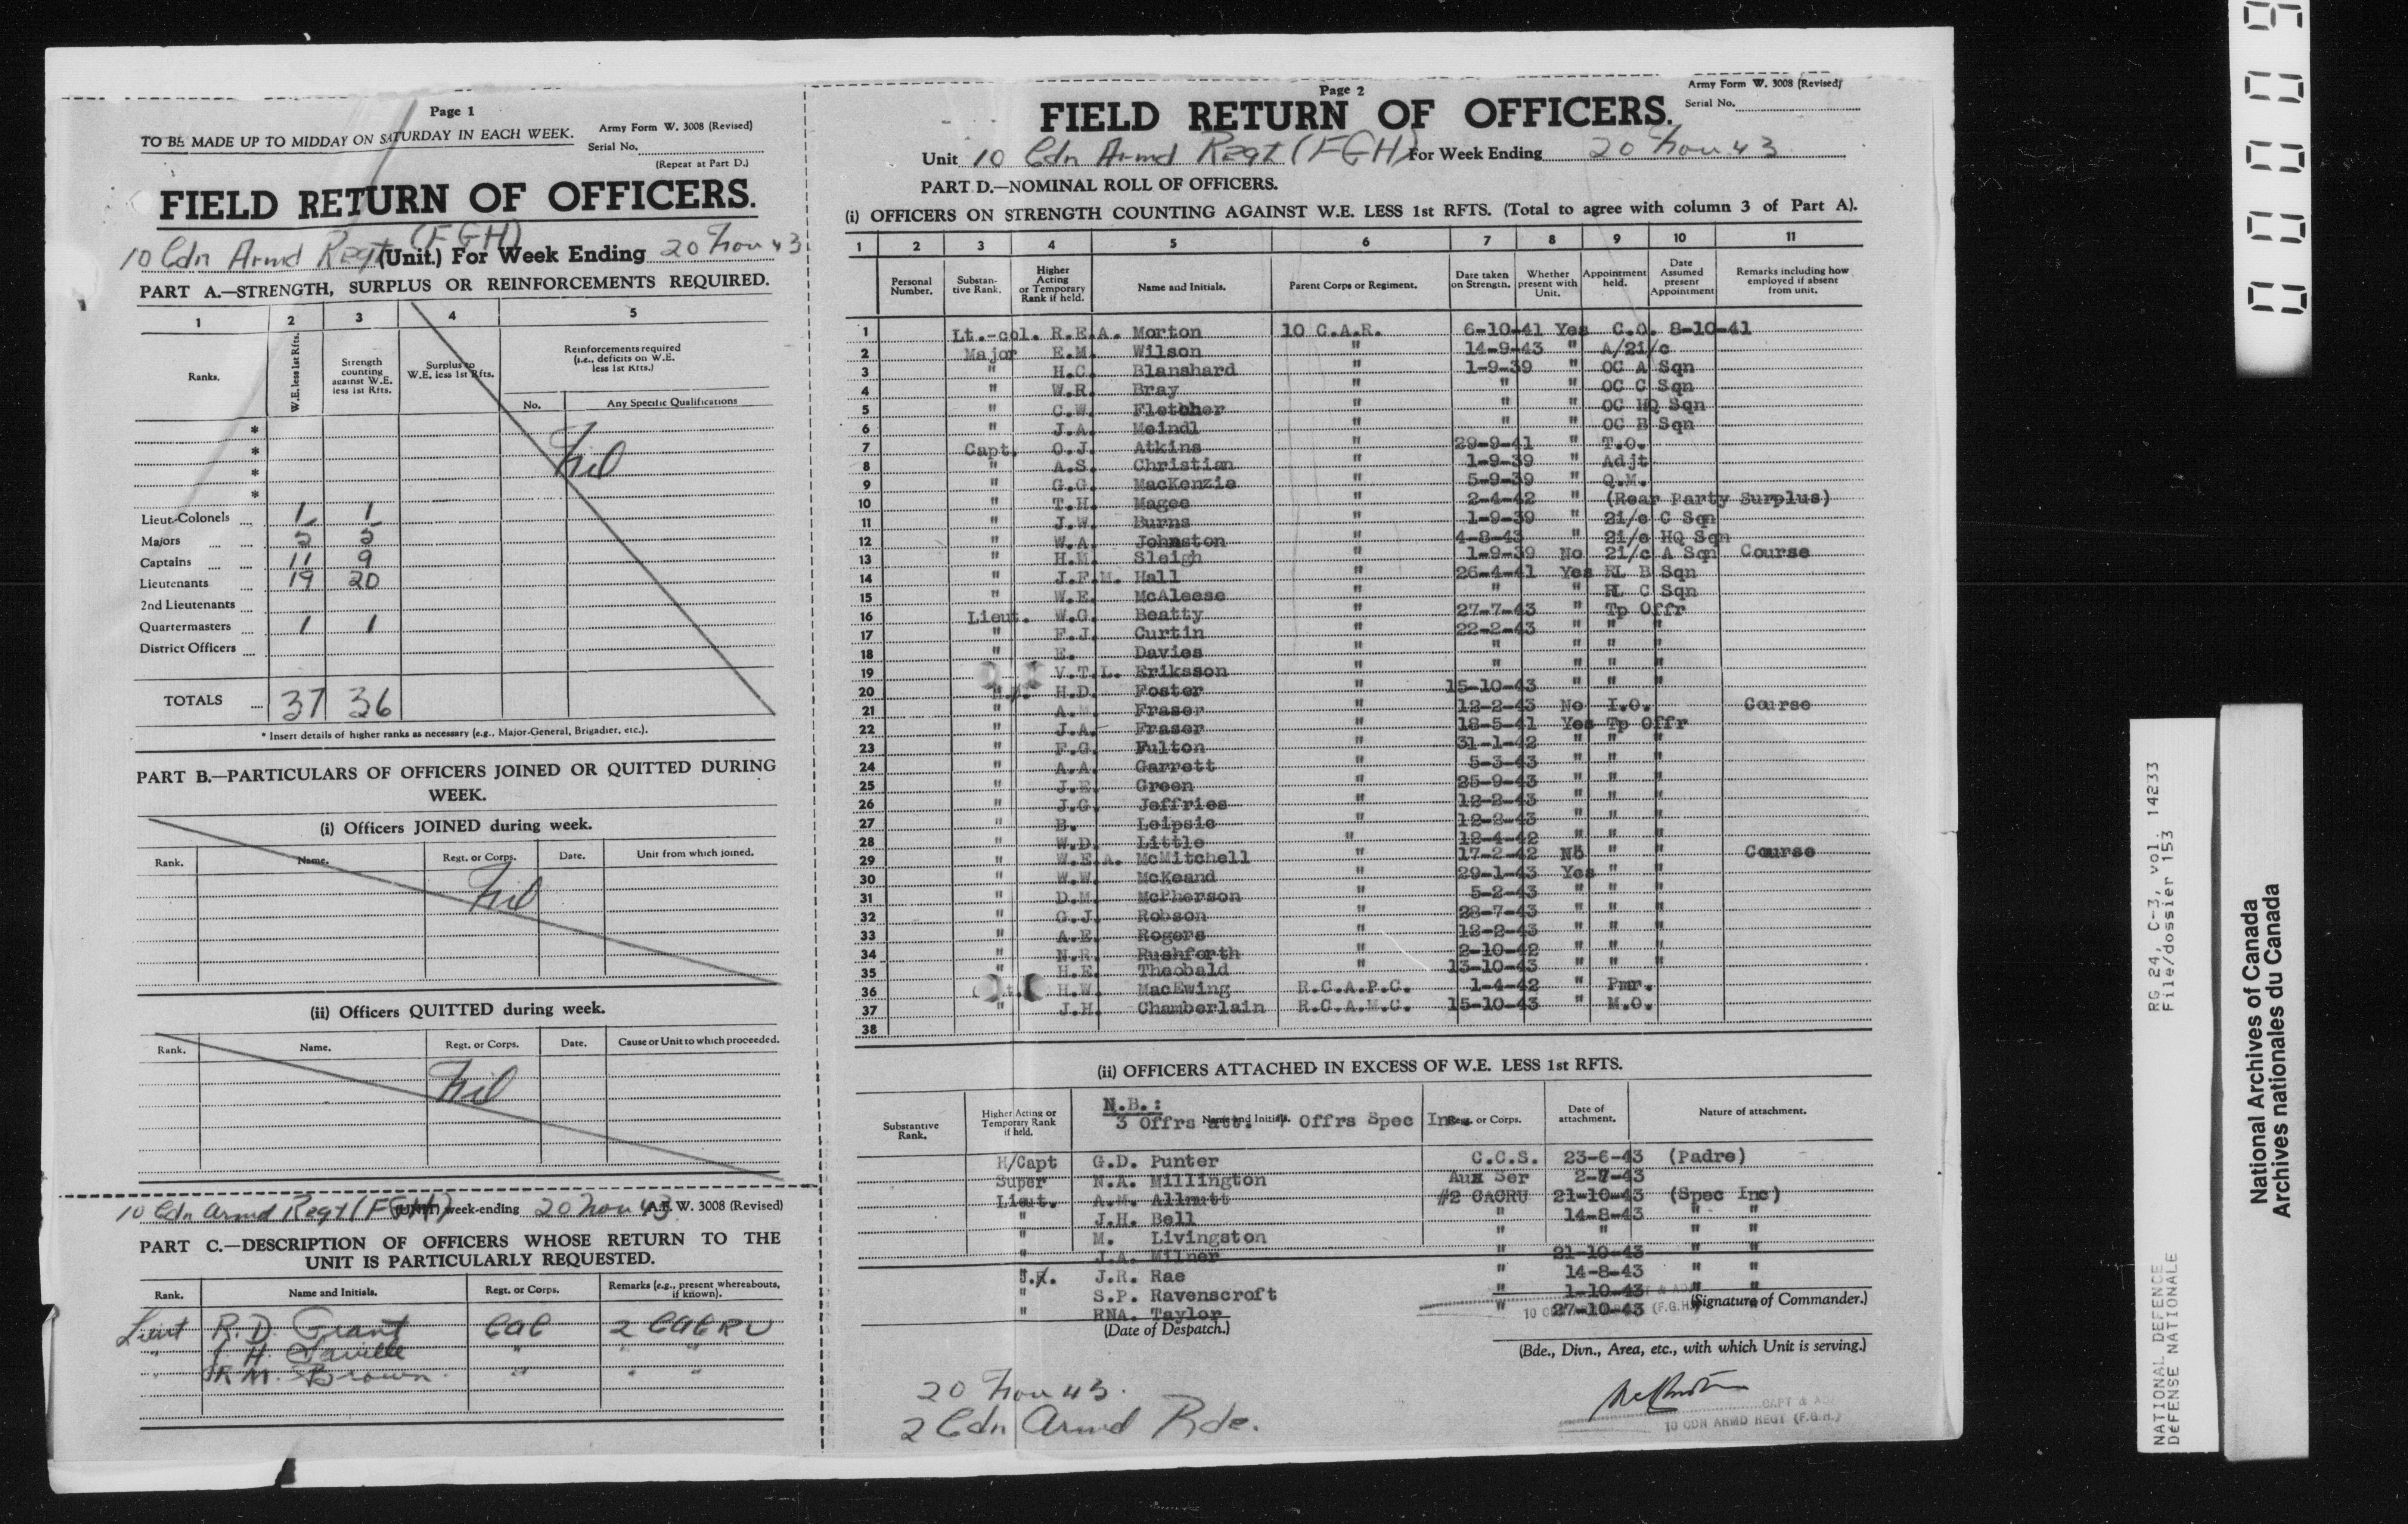 Page 1
TO BE MADE UP TO MIDDAY ON SATURDAY IN EACH WEEK.
Army Form W. 3008 (Revised)
Serial No.
(Repeat at Part D.)
FIELD RETURN OF OFFICERS.
10 Cdn Armd Regt (FGH) (Unit.) For Week Ending 20 Nov 43
PART A.—STRENGTH, SURPLUS OR REINFORCEMENTS REQUIRED.
1 2 3 4 5
Ranks. W.E. less 1st Rfts. Strength counting against W.E. less 1st Rfts. Surplus to W.E. less 1st Rfts. Reinforcements required (i.e., deficits on W.E. less 1st Rfts.)
No. Any Specific Qualifications
*
*
*
*
Nil
Lieut-Colonels 1 1
Majors 5 5
Captains 11 9
Lieutenants 19 20
2nd Lieutenants
Quartermasters 1 1
District Officers
TOTALS 37 36
* Insert details of higher ranks as necessary (e.g., Major-General, Brigadier, etc.).
PART B.—PARTICULARS OF OFFICERS JOINED OR QUITTED DURING WEEK.
(i) Officers JOINED during week.
Rank. Name. Regt. or Corps. Date. Unit from which joined.
Nil
(ii) Officers QUITTED during week.
Rank. Name. Regt. or Corps. Date. Cause or Unit to which proceeded.
Nil
10 Cdn Armd Regt (FGH) (Unit) week-ending 20 Nov 43 A.F. W. 3008 (Revised)
PART C.—DESCRIPTION OF OFFICERS WHOSE RETURN TO THE UNIT IS PARTICULARLY REQUESTED.
Rank. Name and Initials. Regt. or Corps. Remarks (e.g., present whereabouts, if known).
Lieut R.D. Grant CAC 2 CACRU
" H. Saville " " "
" R.M. Brown " " "
Page 2
Army Form W. 3008 (Revised)
Serial No.
FIELD RETURN OF OFFICERS.
Unit 10 Cdn Armd Regt (FGH) For Week Ending 20 Nov 43
PART D.—NOMINAL ROLL OF OFFICERS.
(i) OFFICERS ON STRENGTH COUNTING AGAINST W.E. LESS 1st RFTS. (Total to agree with column 3 of Part A).
1 2 3 4 5 6 7 8 9 10 11
Personal Number. Substantive Rank. Higher Acting or Temporary Rank if held. Name and Initials. Parent Corps or Regiment. Date taken on Strength. Whether present with Unit. Appointment held. Date Assumed present Appointment Remarks including how employed if absent from unit.
1 Lt.-col. R.E.A. Morton 10 C.A.R. 6-10-41 Yes C.O. 8-10-41
2 Major E.M. Wilson " 14-9-43 " A/2i/c
3 " H.C. Blanshard " 1-9-39 " OC A Sqn
4 " W.R. Bray " " " OC C Sqn
5 " C.W. Fletcher " " " OC HQ Sqn
6 " J.A. Meindl " " " OC B Sqn
7 Capt. O.J. Atkins " 29-9-41 " T.O.
8 " A.S. Christian " 1-9-39 " Adjt
9 " G.G. MacKenzie " 5-9-39 " Q.M.
10 " T.H. Magee " 2-4-42 " (Rear Party Surplus)
11 " J.W. Burns " 1-9-39 " 2i/c C Sqn
12 " W.A. Johnston " 4-8-43 " 2i/c HQ Sqn
13 " H.M. Sleigh " 1-9-39 No 2i/c A Sqn Course
14 " J.F.M. Hall " 26-4-41 Yes RL B Sqn
15 " W.E. McAleese " " " RL C Sqn
16 Lieut. W.G. Beatty " 27-7-43 " Tp Offr
17 " F.J. Curtin " 22-2-43 " " "
18 " E. Davies " " " " "
19 V.T.L. Eriksson " " " " "
20 H.D. Foster " 15-10-43 " " "
21 " A.M. Fraser " 12-2-43 No I.O. Course
22 " J.A. Fraser " 18-5-41 Yes Tp Offr
23 " F.G. Fulton " 31-1-42 " " "
24 " A.A. Garrett " 5-3-43 " " "
25 " J.E. Green " 25-9-43 " " "
26 " J.G. Jeffries " 12-2-43 " " "
27 " B. Leipsic " 12-2-43 " " "
28 " W.D. Little " 12-4-42 " " "
29 " W.E.A. McMitchell " 17-2-42 No " " Course
30 " W.W. McKeand " 29-1-43 Yes "
31 " D.M. McPherson " 5-2-43 " " "
32 " G.J. Robson " 28-7-43 " " "
33 " A.E. Rogers " 12-2-43 " " "
34 " N.R. Rushforth " 2-10-42 " " "
35 " H.E. Theobald " 13-10-43 " " "
36 H.W. MacEwing R.C.A.P.C. 1-4-42 " Pmr.
37 " J.H. Chamberlain R.C.A.M.C. 15-10-43 " M.O.
38
(ii) OFFICERS ATTACHED IN EXCESS OF W.E. LESS 1st RFTS.
N.B.:
Substantive Rank. Higher Acting or Temporary Rank if held. Name and Initials. Regt. or Corps. Date of attachment. Nature of attachment.
3 Offrs att. 7 Offrs Spec Inc
H/Capt G.D. Punter C.C.S. 23-6-43 (Padre)
Super N.A. Millington Aux Ser 2-7-43
Lieut. A.M. Allmutt #2 CACRU 21-10-43 (Spec Inc)
" J.H. Bell " 14-8-43 " "
" M. Livingston " " " "
" J.A. Milner " 21-10-43 " "
J.R. Rae " 14-8-43 " "
" S.P. Ravenscroft " 1-10-43 " "
" RNA. Taylor " 27-10-43 "
(Date of Despatch.)
(Signature of Commander.)
(Bde., Divn., Area, etc., with which Unit is serving.)
20 Nov 43.
2 Cdn Armd Bde.
CAPT & ADJ
10 CDN ARMD REGT (F.G.H.)
RG 24, C-3, vol. 14233
File/dossier 153
NATIONAL DEFENCE
DÉFENSE NATIONALE
National Archives of Canada
Archives nationales du Canada